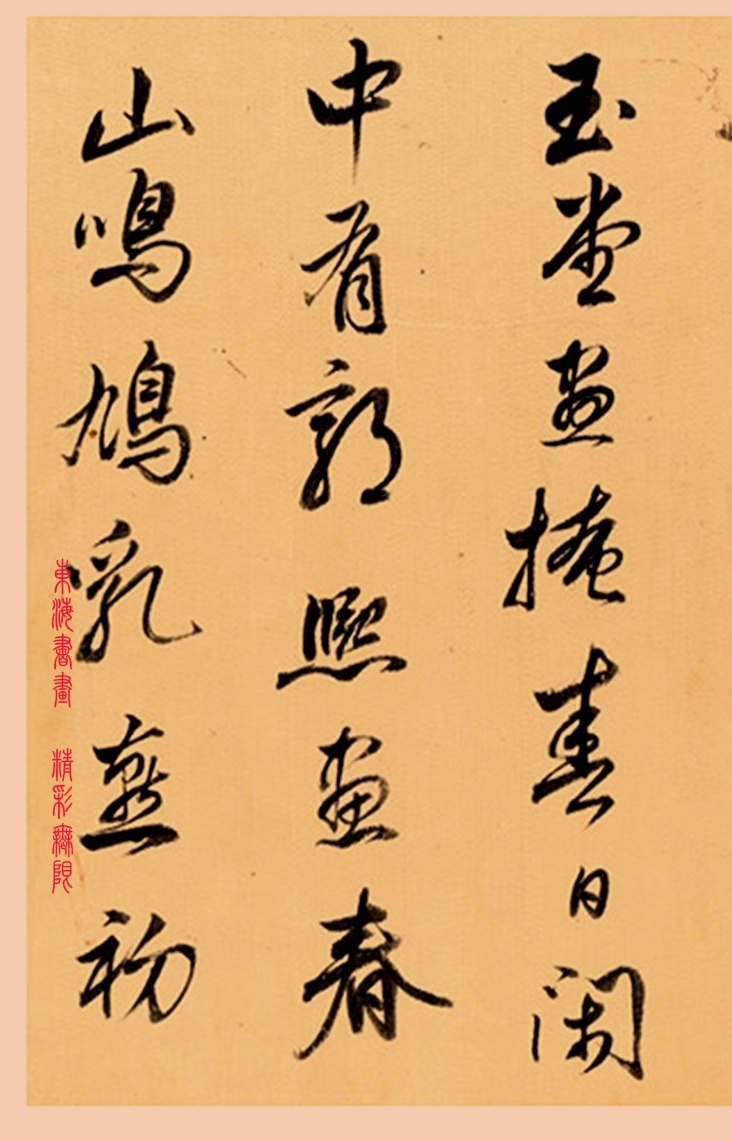 玉堂晝掩春日閑
中有郭熙畫春
山鳴鳩乳燕初
東海書畫 精彩無限